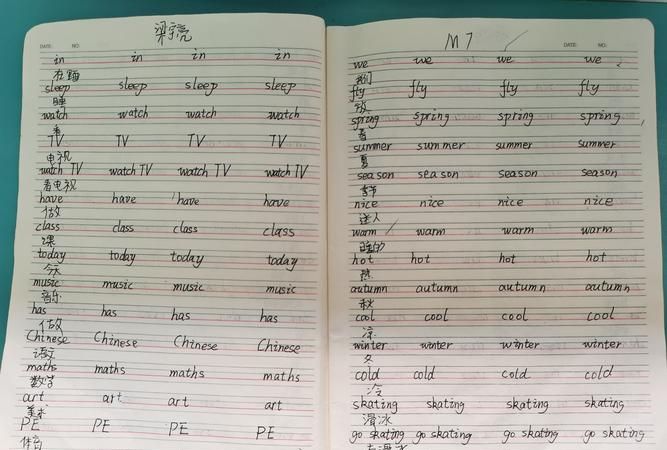 梁宇亮
DATE: NO:
in in in in
在
sleep sleep sleep sleep
睡
watch watch watch watch
看
TV TV TV TV
电视
watch TV watch TV watch TV watch TV
看电视
have have have have
做
class class class class
课
today today today today
今天
music music music music
音乐
has has has has
做
Chinese Chinese Chinese Chinese
语文
maths maths maths maths
数学
art art art art
美术
PE PE PE PE
体育
M7
DATE: NO:
we we we we
我们
fly fly fly fly
放
spring spring spring spring
春
summer summer summer summer
夏
season season season season
季节
nice nice nice nice
warm warm warm warm
hot hot hot hot
热
autumn autumn autumn autumn
秋
cool cool cool cool
凉
winter winter winter winter
冬
cold cold cold cold
冷
skating skating skating skating
滑冰
go skating go skating go skating go skating
去滑冰